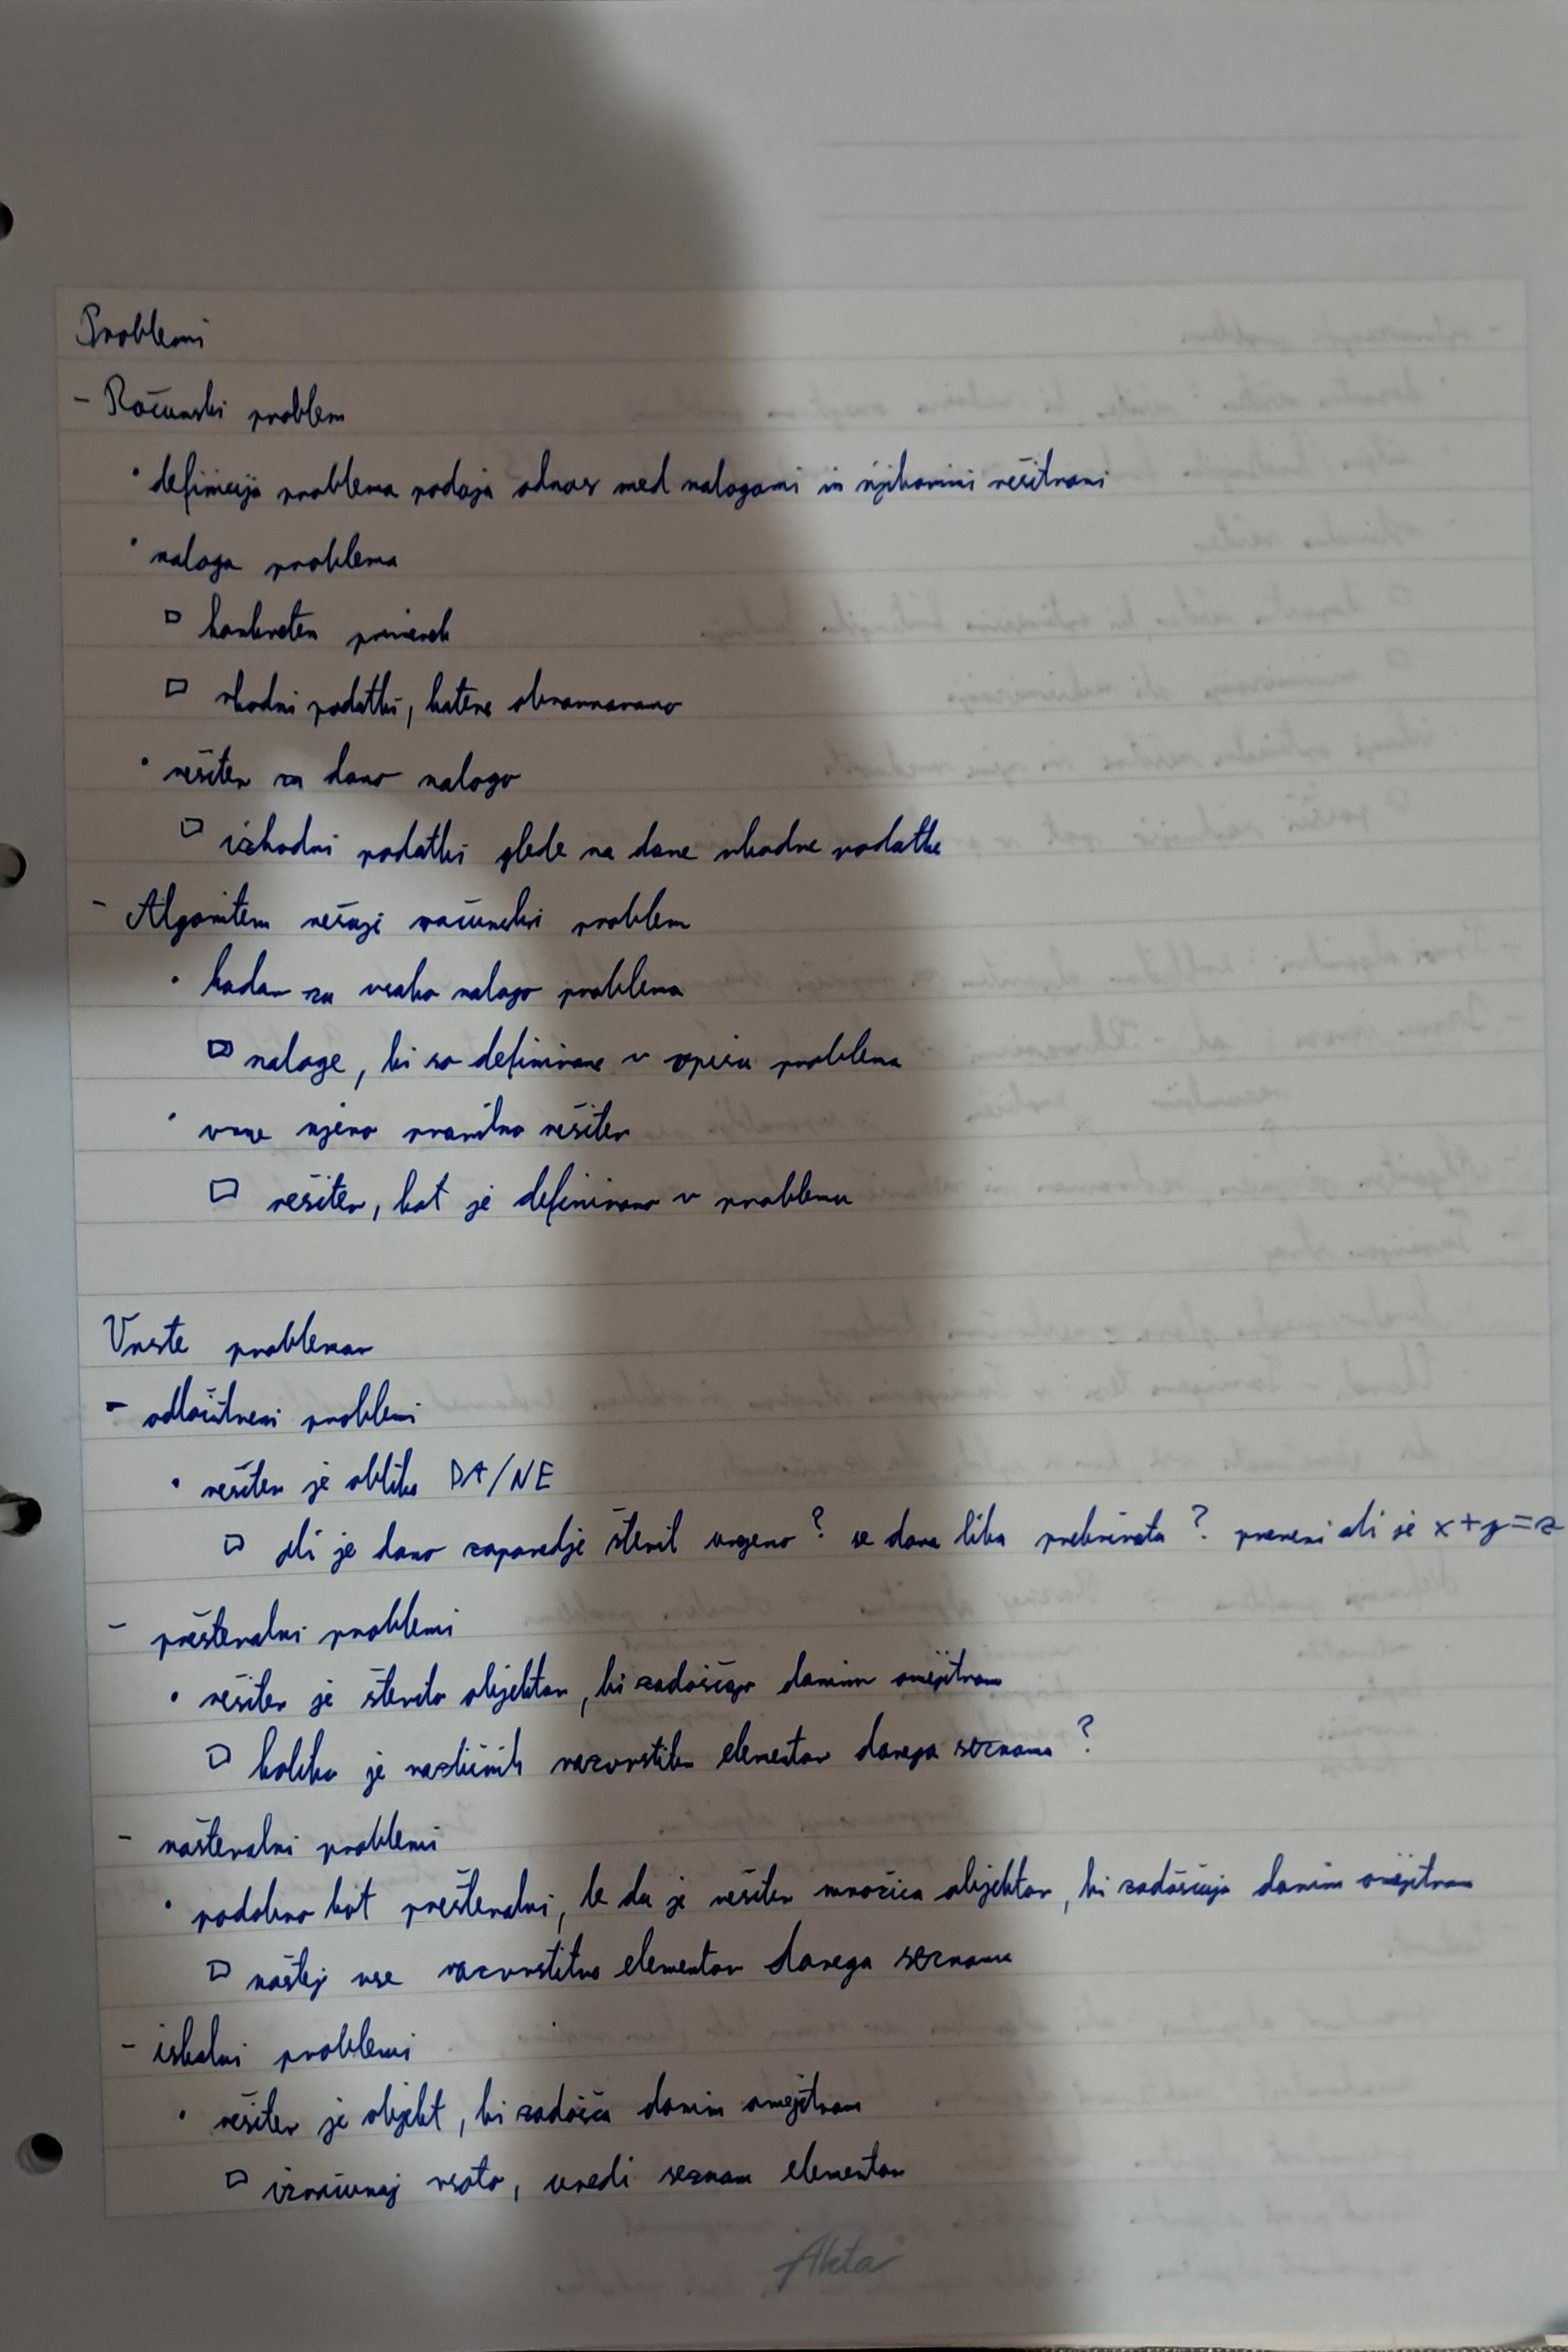 Problemi
- Računski problem
• definicija problema podaja odnos med nalogami in njihovimi rešitvami
• naloga problema
▫ konkreten primerek
▫ vhodni podatki, katere obravnavamo
• rešitev za dano nalogo
▫ izhodni podatki glede na dane vhodne podatke
- Algoritem rešuje računski problem
• kadar za vsako nalogo problema
▫ naloge, ki so definirane v opisu problema
• vrne njeno pravilno rešitev
▫ rešitev, kot je definirano v problemu
Vrste problemov
- odločitveni problemi
• rešitev je oblike DA/NE
▫ ali je dano zaporedje števil urejeno? se dana lika prekrivata? preveri ali je x+y=z
- preštevalni problemi
• rešitev je število objektov, ki zadoščajo danim omejitvam
▫ koliko je različnih razvrstitev elementov danega seznama?
- naštevalni problemi
• podobno kot preštevalni, le da je rešitev množica objektov, ki zadoščajo danim omejitvam
▫ naštej vse razvrstitve elementov danega seznama
- iskalni problemi
• rešitev je objekt, ki zadošča danim omejitvam
▫ izračunaj vsoto, uredi seznam elementov
Akta